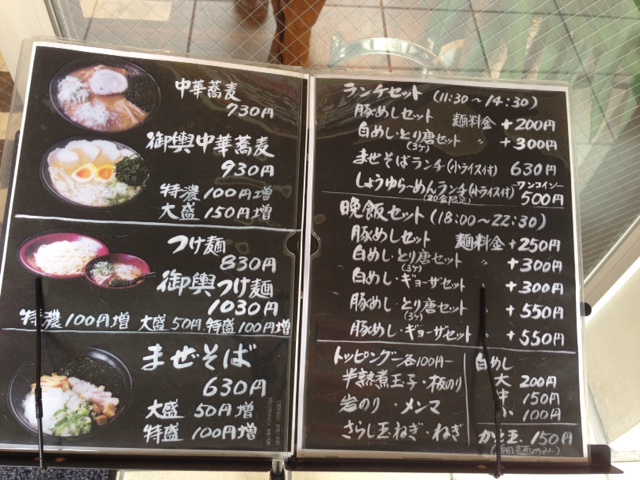 中華蕎麦
730円
御輿中華蕎麦
930円
特濃100円増
大盛150円増
つけ麺
830円
御輿つけ麺
1030円
特濃100円増 大盛50円.特盛100円増
まぜそば
630円
大盛50円増
特盛100円増
ランチセット(11:30〜14:30)
豚めしセット 麺料金+200円
白めし・とり唐セット 〃 +300円
(3ヶ)
まぜそばランチ(小ライス付) 630円
しょうゆらーめんランチ(小ライス付) ワンコイン 500円
晩飯セット(18:00〜22:30)
豚めしセット 麺料金+250円
白めし・とり唐セット 〃 +300円
(3ヶ)
白めし・ギョーザセット 〃 +300円
豚めし・とり唐セット 〃 +550円
(3ヶ)
豚めし・ギョーザセット 〃 +550円
トッピング各100円
半熟煮玉子・板のり
岩のり・メンマ
さらし玉ねぎ・ねぎ
白めし
大 200円
中 150円
小 100円
150円